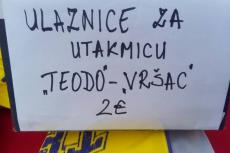 ULAZNICE ZA
UTAKMICU
„TEODO"-„VRŠAC"
2€